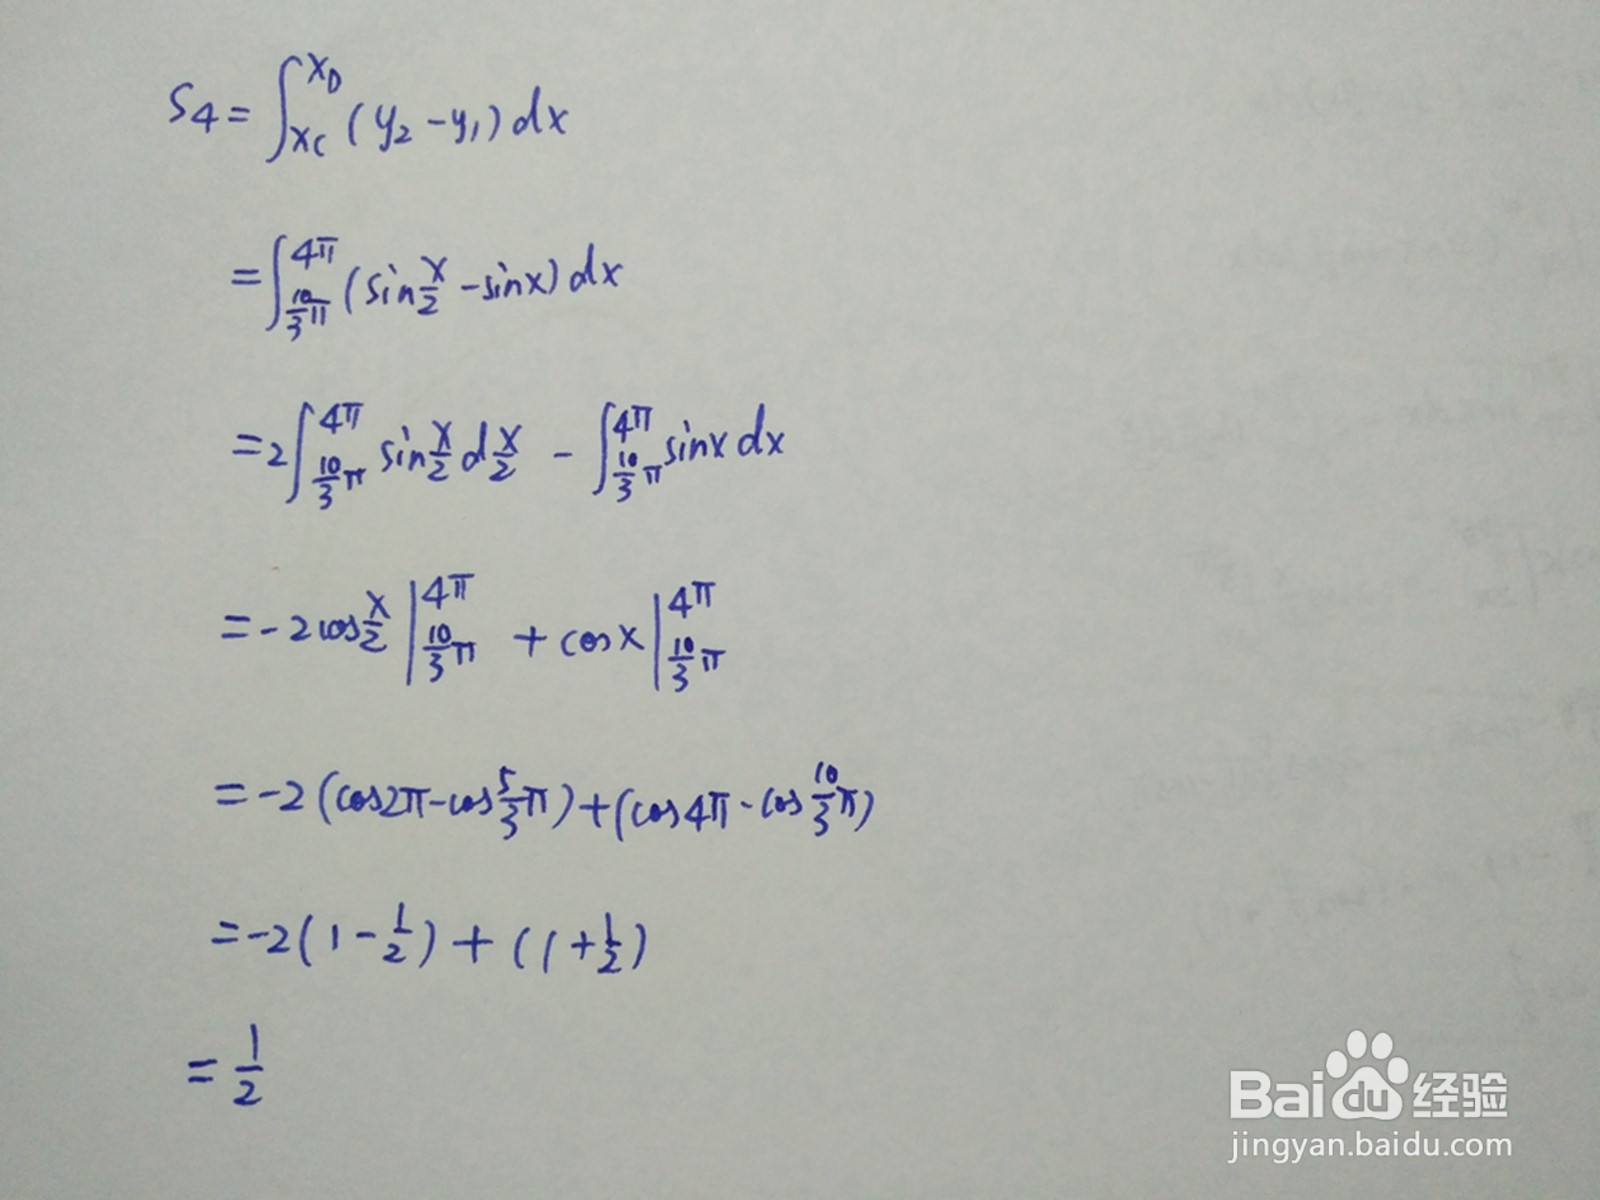 S₄ = ∫_{x_C}^{x_D} (y₂ - y₁) dx
= ∫_{10/3 π}^{4π} (sin x/2 - sinx) dx
= 2∫_{10/3 π}^{4π} sin x/2 d x/2 - ∫_{10/3 π}^{4π} sinx dx
= -2cos x/2 |_{10/3 π}^{4π} + cosx |_{10/3 π}^{4π}
= -2(cos2π - cos 5/3 π) + (cos4π - cos 10/3 π)
= -2(1 - 1/2) + (1 + 1/2)
= 1/2
Bai du 经验
jingyan.baidu.com